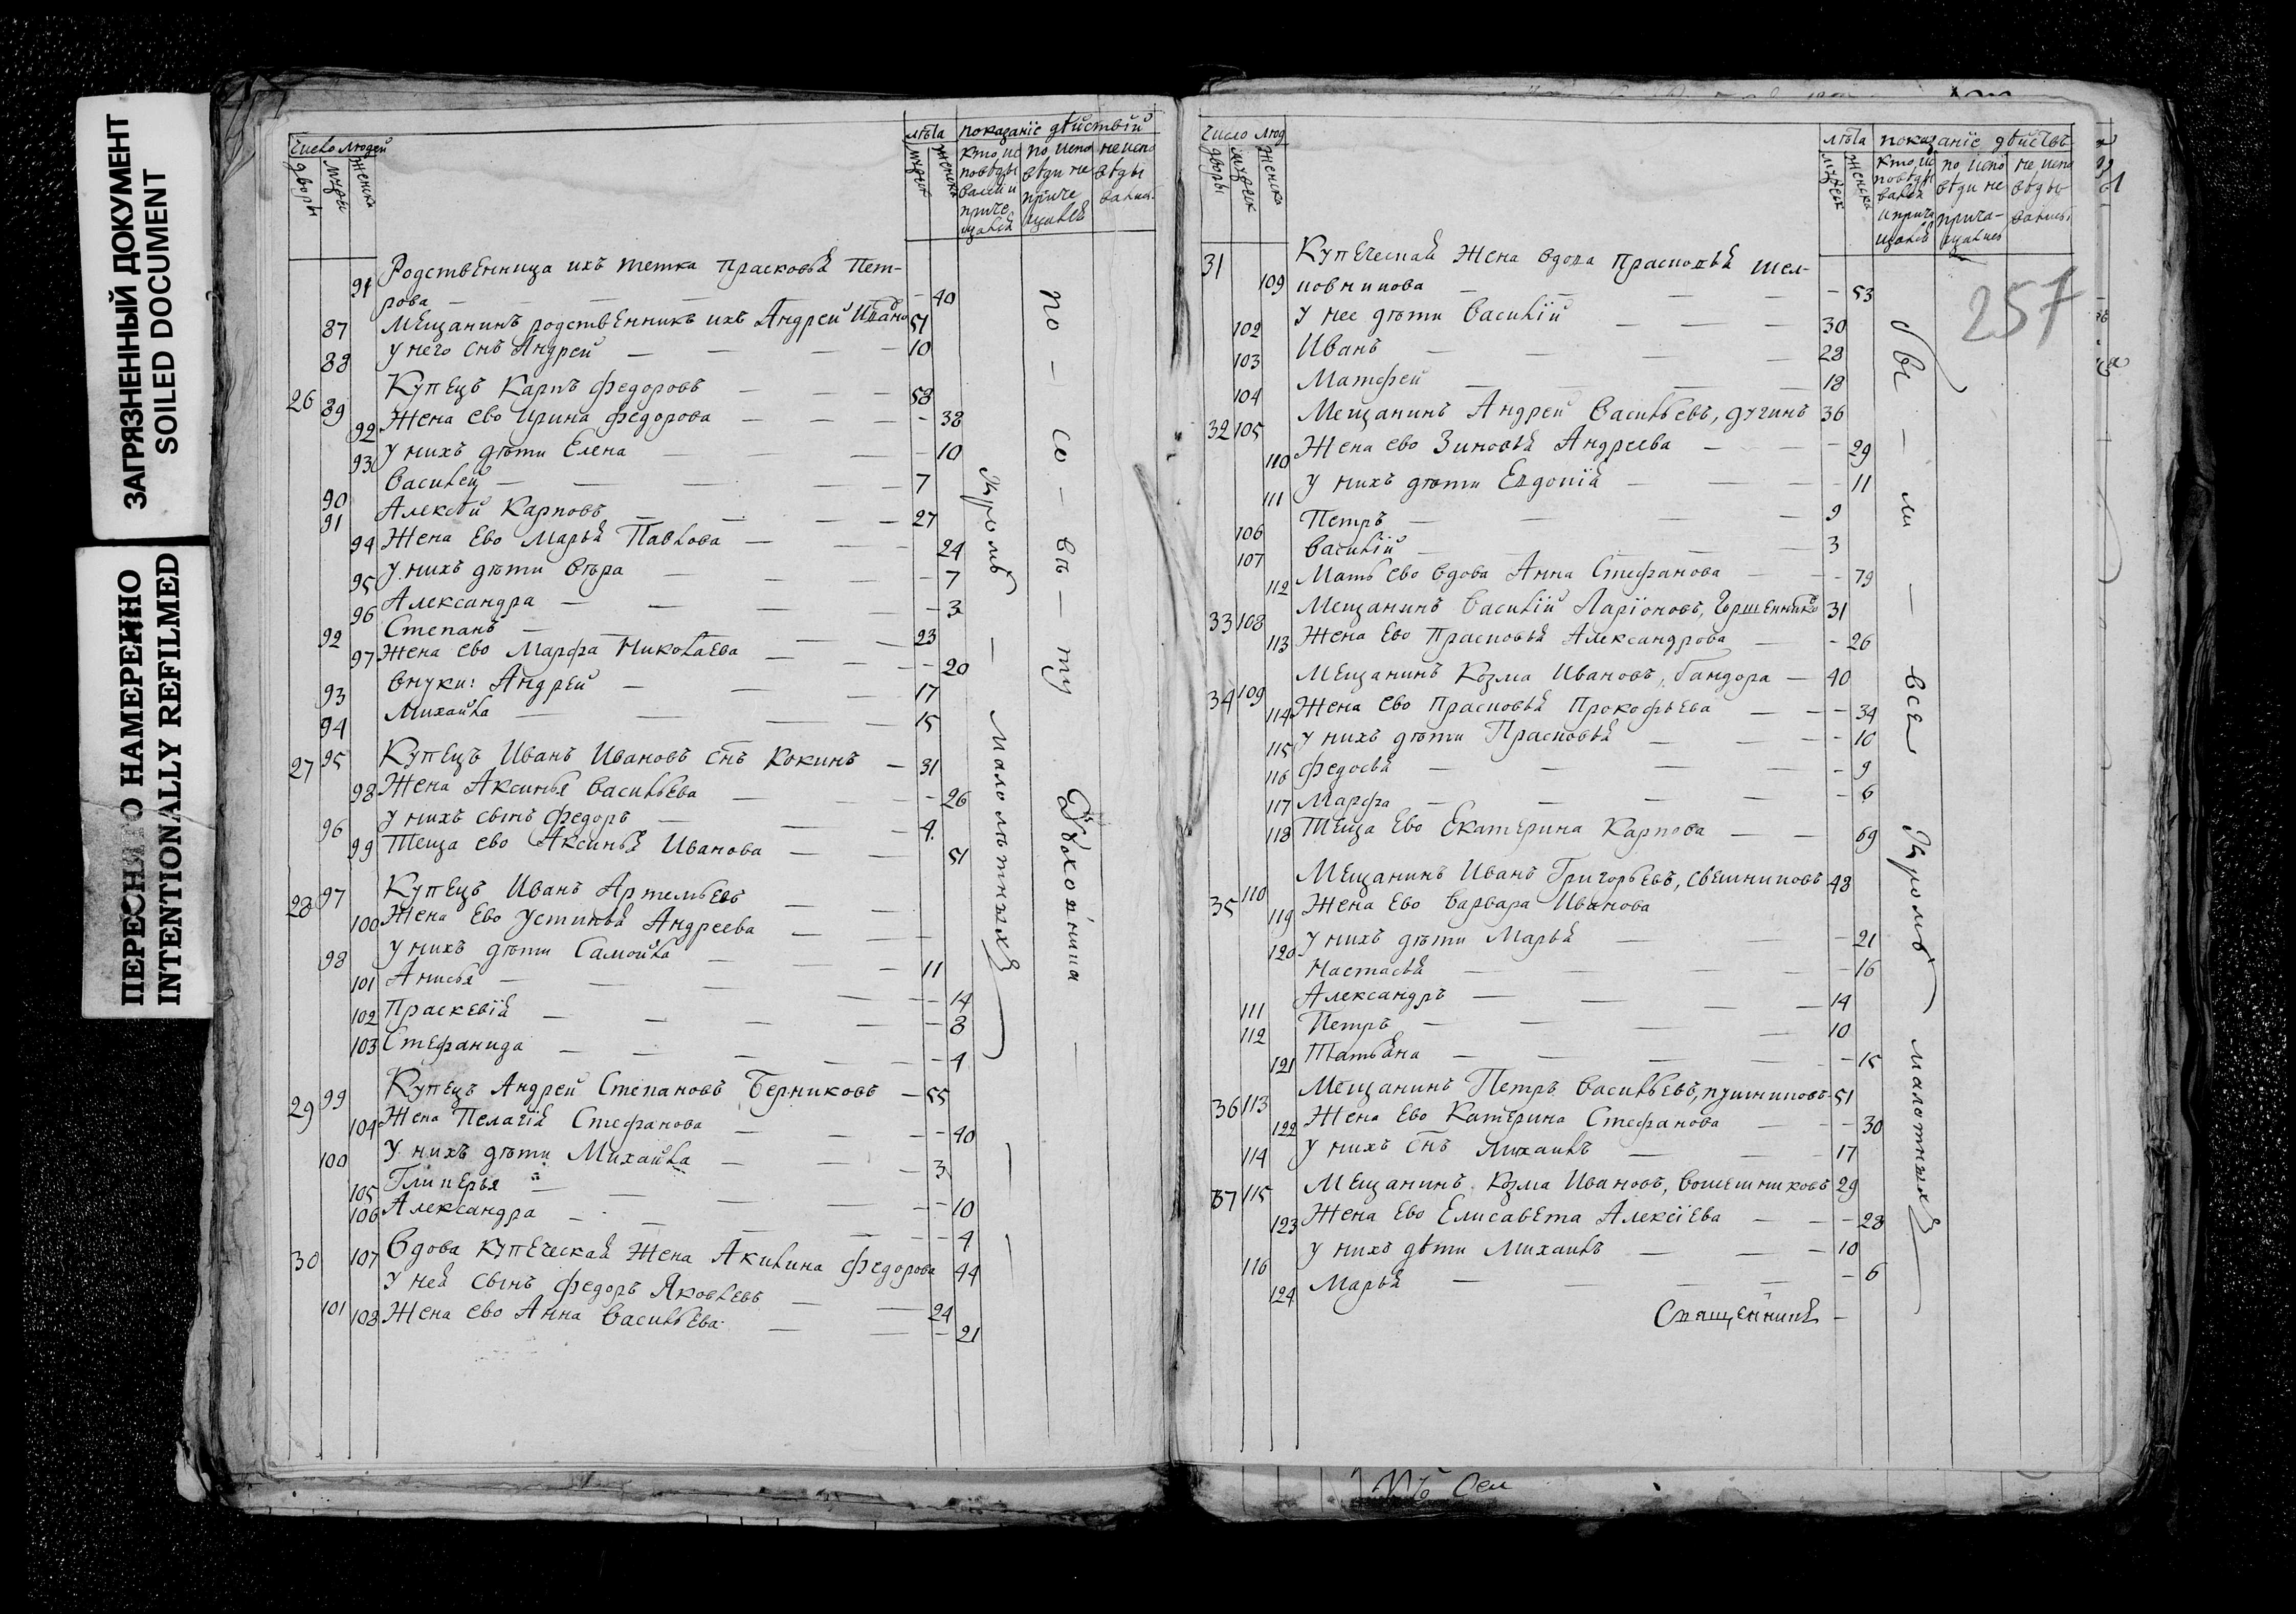 ЗАГРЯЗНЕННЫЙ ДОКУМЕНТ
SOILED DOCUMENT
ПЕРЕСНЯТО НАМЕРЕННО
INTENTIONALLY REFILMED
Число людей
дворы
мужск
женска
лѣта
мужск
женска
показаніе дѣйствій
кто ис
повѣды
вался и
приче
щался
по испо
вѣди не
приче
щался
не испо
вѣды
вались
91 Родственница ихъ тетка Прасковья Пет-
рова — 40
87 Мещанинъ родственникъ ихъ Андрей Ивано 51
88 У него снъ Андрей — 10
26 89 Купецъ Карпъ Федоровъ — 58
92 Жена ево Ирина Федорова — 38
93 У нихъ дѣти Елена — 10
90 Василей — 7
91 Алексѣй Карповъ — 27
94 Жена Ево Марья Павлова — 24
95 У нихъ дѣти Вѣра — 7
96 Александра — 3
92 Степанъ — 23
97 Жена ево Марфа Николаева — 20
93 Внуки: Андрей — 17
94 Михайла — 15
27 95 Купецъ Иванъ Ивановъ снъ Кокинъ — 31
98 Жена Аксинья Васильева — 26
96 У нихъ сынъ Федоръ — 4
99 Теща ево Аксинья Иванова — 51
28 97 Купецъ Иванъ Артемьевъ —
100 Жена Ево Устинья Андреева —
98 У нихъ дѣти Самойла — 11
101 Анисья — 14
102 Праскевія — 8
103 Стефанида — 4
29 99 Купецъ Андрей Степановъ Берниковъ — 55
104 Жена Пелагія Стефанова — 40
100 У нихъ дѣти Михайла — 3
105 Гликерья — 10
106 Александра — 4
30 107 Вдова купеческая Жена Акилина Федорова 44
101 У ней сынъ Федоръ Яковлевъ — 24
108 Жена ево Анна Васильева — 21
по — со — вѣ — ту
кромѣ — малолѣтныхъ
Число люд
дворы
мужск
женска
лѣта
мужск
женска
показаніе дѣиствъ
кто ис
повѣды
вался
и прича
щался
по испо
вѣди не
прича-
щались
не испо
вѣды
вались
257
31 109 Купеческая Жена вдова Прасковья Шел-
ковникова — 53
102 У нее дѣти Василій — 30
103 Иванъ — 28
104 Матфей — 18
32 105 Мещанинъ Андрей Васильевъ, дугинъ 36
110 Жена ево Зиновья Андреева — 29
111 У нихъ дѣти Евдокія — 11
106 Петръ — 9
107 Василій — 3
112 Мать ево вдова Анна Стефанова — 79
33 108 Мещанинъ Василій Ларіоновъ, 31
113 Жена Ево Прасковья Александрова — 26
34 109 Мещанинъ Козма Ивановъ, бандора — 40
114 Жена ево Прасковья Прокофьева — 34
115 У нихъ дѣти Прасковья — 10
116 Федосья — 9
117 Марфа — 6
118 Теща Ево Екатерина Карпова — 69
35 110 Мещанинъ Иванъ Григорьевъ, свешниковъ 48
119 Жена Ево Варвара Иванова
120 У нихъ дѣти Марья — 21
Настасья — 16
111 Александръ — 14
112 Петръ — 10
121 Татьяна — 15
36 113 Мещанинъ Петръ Васильевъ, пушниковъ 51
122 Жена Ево Катерина Стефанова — 30
114 У нихъ снъ Михаилъ — 17
37 115 Мещанинъ Козма Ивановъ, 29
123 Жена Ево Елисавета Алексіева — 28
116 У нихъ дѣти Михаилъ — 10
124 Марья — 6
Священникъ —
бы — ли — всѣ
кромѣ малотныхъ